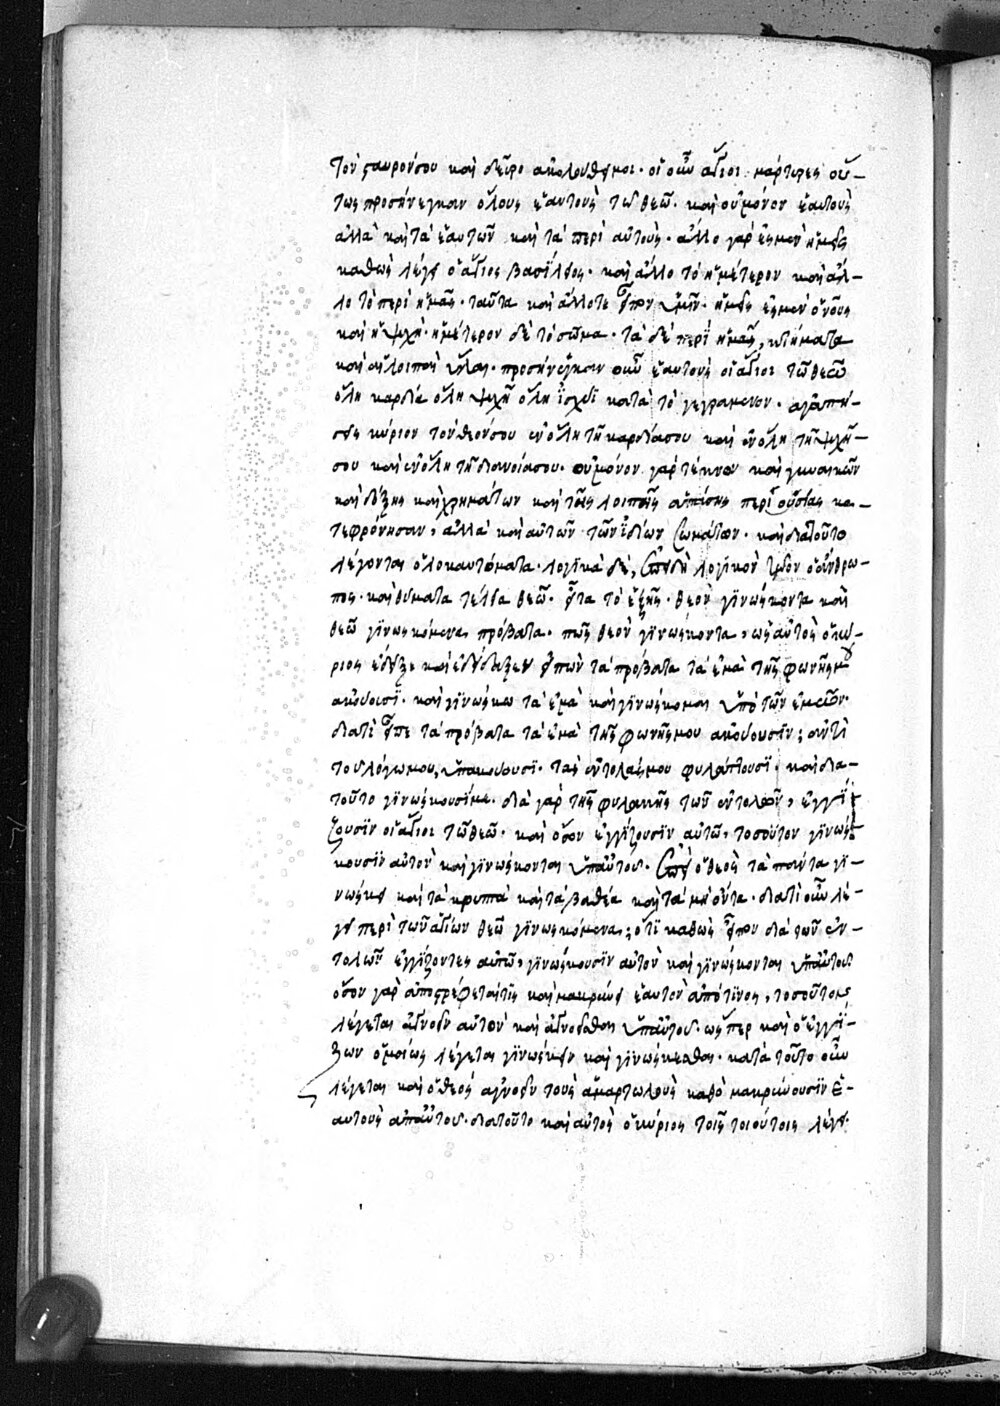 τὸν σταυρόν σου καὶ δεῦρο ἀκολούθει μοι· οἱ οὖν ἅγιοι μάρτυρες οὕ-
τως προσήνεγκαν ὅλους ἑαυτοὺς τῷ θεῷ· καὶ οὐ μόνον ἑαυτοὺς
ἀλλὰ καὶ τὰ ἑαυτῶν καὶ τὰ περὶ αὐτούς· ἄλλο γάρ ἐσμεν ἡμεῖς
καθὼς λέγει ὁ ἅγιος βασίλειος· καὶ ἄλλο τὸ ἡμέτερον καὶ ἄλ-
λο τὸ περὶ ἡμᾶς· ταῦτα καὶ ἄλλοτε εἶπον ὑμῖν· ἡμεῖς ἐσμεν ὁ νοῦς
καὶ ἡ ψυχή· ἡμέτερον δὲ τὸ σῶμα· τὰ δὲ περὶ ἡμᾶς, κτήματα
καὶ αἱ λοιπαὶ ὗλαι· προσήνεγκαν οὖν ἑαυτοὺς οἱ ἅγιοι τῷ θεῷ
ὅλη καρδία ὅλη ψυχῆ ὅλη ἰσχύϊ κατὰ τὸ γεγραμμένον· ἀγαπή-
σεις κύριον τὸν θεόν σου ἐν ὅλη τῆ καρδία σου καὶ ἐν ὅλη τῆ ψυχῆ
σου καὶ ἐν ὅλη τῆ διανοία σου· οὐ μόνον γὰρ τέκνων καὶ γυναικῶν
καὶ δόξης καὶ χρημάτων καὶ τῆς λοιπῆς ἁπάσης περιουσίας κα-
τεφρόνησαν, ἀλλὰ καὶ αὐτῶν τῶν ἰδίων σωμάτων· καὶ διατοῦτο
λέγονται ὁλοκαυτώματα· λογικὰ δὲ, ἐπειδὴ λογικὸν ζῶον ὁ ἄνθρω-
πος· καὶ θύματα τέλεια θεῶ· εἶτα τὸ ἑξῆς· θεὸν γινώσκοντα καὶ
θεῶ γινωσκόμενα πρόβατα· πῶς θεὸν γινώσκοντα, ὡς αὐτὸς ὁ κύ-
ριος ἔδειξε καὶ ἐδίδαξεν εἰπών τὰ πρόβατα τὰ ἐμὰ τῆς φωνῆς μου
ἀκούουσι· καὶ γινώσκω τὰ ἐμὰ καὶ γινώσκομαι ὑπὸ τῶν ἐμῶν·
διατί εἶπε τὰ πρόβατα τὰ ἐμὰ τῆς φωνῆς μου ἀκούουσιν; ἀντὶ
τοῦ λόγω μου, ὑπακούουσι· τὰς ἐντολάς μου φυλάττουσι· καὶ δια-
τοῦτο γινώσκουσί με· διὰ γὰρ τῆς φυλακῆς τῶν ἐντολῶν, ἐγγί-
ζουσιν οἱ ἅγιοι τῶ θεῶ· καὶ ὅσον ἐγγίζουσιν αὐτῶ, τοσοῦτον γινώσ-
κουσιν αὐτὸν καὶ γινώσκονται ὑπαὐτοῦ· ἐπεὶ ὁ θεὸς τὰ πάντα γι-
νώσκει καὶ τὰ κρυπτὰ καὶ τὰ βαθέα καὶ τὰ μὴ ὄντα· διατί οὖν λέ-
γει περὶ τῶν ἁγίων θεῶ γινωσκόμενα; ὅτι καθὼς εἶπον διὰ τῶν ἐν-
τολῶν ἐγγίζοντες αὐτῶ, γινώσκουσιν αὐτὸν καὶ γινώσκονται ὑπαὐτοῦ
ὅσον γὰρ ἀποστρέφεταί τις καὶ μακρύνει ἑαυτὸν ἀπό τινος, τοσοῦτον
λέγεται ἀγνοεῖν αὐτὸν καὶ ἀγνοεῖσθαι ὑπαὐτοῦ· ὥσπερ καὶ ὁ ἐγγί-
ζων ὁμοίως λέγεται γινώσκειν καὶ γινώσκεσθαι· κατὰ τοῦτο οὖν
λέγεται καὶ ὁ θεὸς ἀγνοεῖν τοὺς ἁμαρτωλοὺς καθὸ μακρύνουσιν ἑ-
αυτοὺς ἀπαὐτοῦ· διατοῦτο καὶ αὐτὸς ὁ κύριος τοῖς τοιούτοις λέγει·